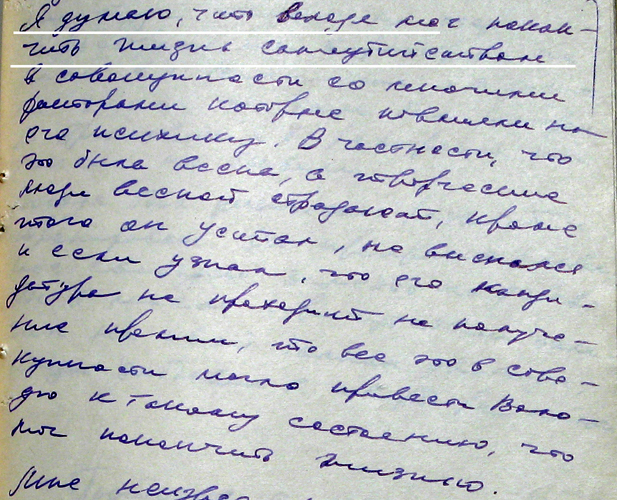 Я думаю, что Володя мог покон-
чить жизнь самоубийством
в совокупности со многими
факторами которые повлияли на
его психику. В частности, что
это была весна, а творческие
люди весной страдают, кроме
этого он устал, не выспался
и если узнал, что его канди-
датура не проходит на получе-
ние премии, то все это в сово-
купности могло привести Воло-
дю к такому состоянию, что
мог покончить жизнью.
Мне неизвес